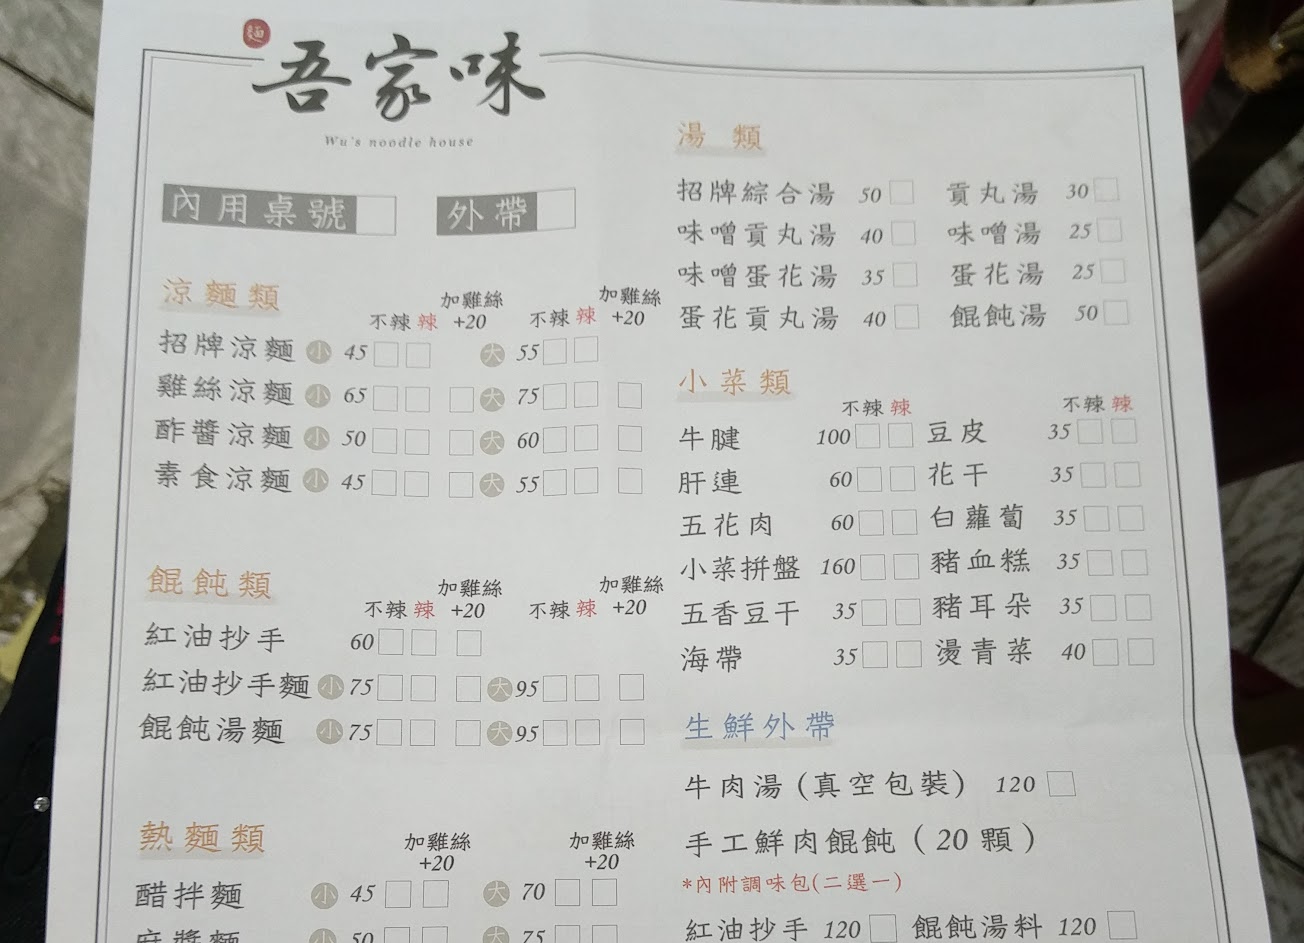 麵
吾家味
Wu's noodle house
內用桌號
外帶
涼麵類
不辣 辣 加雞絲 +20 不辣 辣 加雞絲 +20
招牌涼麵 小 45 大 55
雞絲涼麵 小 65 大 75
酢醬涼麵 小 50 大 60
素食涼麵 小 45 大 55
餛飩類
不辣 辣 加雞絲 +20 不辣 辣 加雞絲 +20
紅油抄手 60
紅油抄手麵 小 75 大 95
餛飩湯麵 小 75 大 95
熱麵類
加雞絲 +20 加雞絲 +20
醋拌麵 小 45 大 70
麻醬麵 小 50 大 75
湯類
招牌綜合湯 50 貢丸湯 30
味噌貢丸湯 40 味噌湯 25
味噌蛋花湯 35 蛋花湯 25
蛋花貢丸湯 40 餛飩湯 50
小菜類
不辣 辣 不辣 辣
牛腱 100 豆皮 35
肝連 60 花干 35
五花肉 60 白蘿蔔 35
小菜拼盤 160 豬血糕 35
五香豆干 35 豬耳朵 35
海帶 35 燙青菜 40
生鮮外帶
牛肉湯(真空包裝) 120
手工鮮肉餛飩(20 顆)
*內附調味包(二選一)
紅油抄手 120 餛飩湯料 120